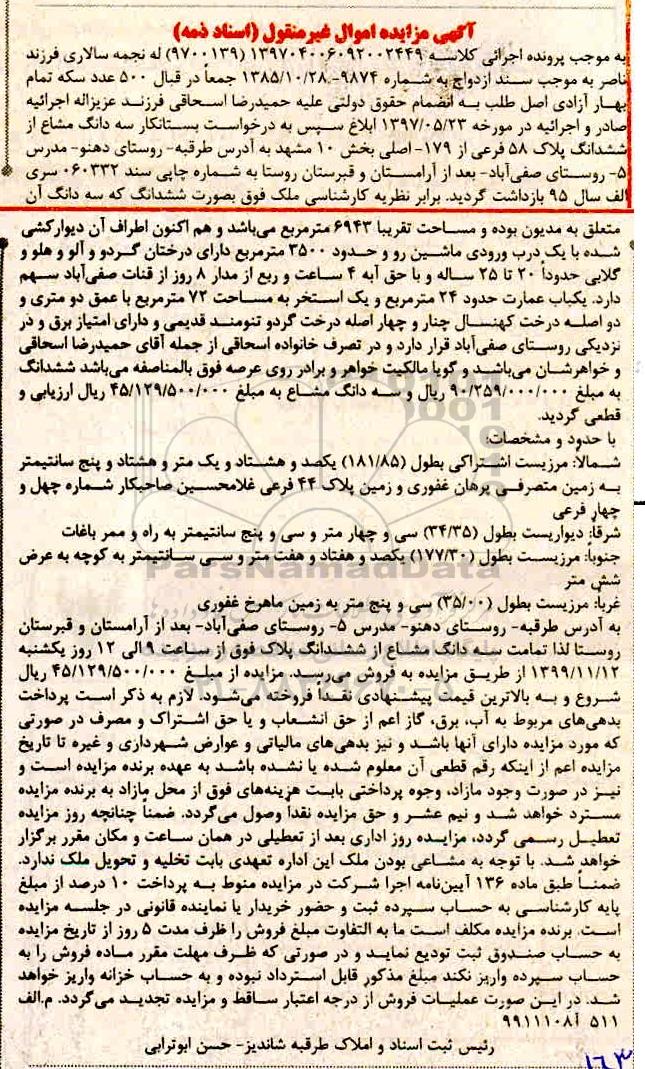 آگهی مزایده اموال غیرمنقول (اسناد ذمه)
به موجب پرونده اجرائی کلاسه ۱۳۹۷۰۴۰۰۶۰۹۲۰۰۲۴۴۹ (۹۷۰۰۱۳۹) له نجمه سالاری فرزند
ناصر به موجب سند ازدواج به شماره ۹۸۷۴-۱۳۸۵/۱۰/۲۸ جمعاً در قبال ۵۰۰ عدد سکه تمام
بهار آزادی اصل طلب به انضمام حقوق دولتی علیه حمیدرضا اسحاقی فرزند عزیزاله اجرائیه
صادر و اجرائیه در مورخه ۱۳۹۷/۰۵/۲۳ ابلاغ سپس به درخواست بستانکار سه دانگ مشاع از
ششدانگ پلاک ۵۸ فرعی از ۱۷۹- اصلی بخش ۱۰ مشهد به آدرس طرقبه- روستای دهنو- مدرس
۵- روستای صفی‌آباد- بعد از آرامستان و قبرستان روستا به شماره چاپی سند ۰۶۰۳۳۲ سری
الف سال ۹۵ بازداشت گردید. برابر نظریه کارشناسی ملک فوق بصورت ششدانگ که سه دانگ آن
متعلق به مدیون بوده و مساحت تقریبا ۶۹۴۳ مترمربع می‌باشد و هم اکنون اطراف آن دیوارکشی
شده با یک درب ورودی ماشین رو و حدود ۳۵۰۰ مترمربع دارای درختان گردو و آلو و هلو و
گلابی حدوداً ۲۰ تا ۲۵ ساله و با حق آبه ۴ ساعت و ربع از مدار ۸ روز از قنات صفی‌آباد سهم
دارد. یکباب عمارت حدود ۲۴ مترمربع و یک استخر به مساحت ۷۲ مترمربع با عمق دو متری و
دو اصله درخت کهنسال چنار و چهار اصله درخت گردو تنومند قدیمی و دارای امتیاز برق و در
نزدیکی روستای صفی‌آباد قرار دارد و در تصرف خانواده اسحاقی از جمله آقای حمیدرضا اسحاقی
و خواهرشان می‌باشند و گویا مالکیت خواهر و برادر روی عرصه فوق بالمناصفه می‌باشد ششدانگ
به مبلغ ۹۰/۲۵۹/۰۰۰/۰۰۰ ریال و سه دانگ مشاع به مبلغ ۴۵/۱۲۹/۵۰۰/۰۰۰ ریال ارزیابی و
قطعی گردید.
با حدود و مشخصات:
شمالا: مرزیست اشتراکی بطول (۱۸۱/۸۵) یکصد و هشتاد و یک متر و هشتاد و پنج سانتیمتر
به زمین متصرفی پرهان غفوری و زمین پلاک ۴۴ فرعی غلامحسین صاحبکار شماره چهل و
چهار فرعی
شرقاً: دیواریست بطول (۳۴/۳۵) سی و چهار متر و سی و پنج سانتیمتر به راه و ممر باغات
جنوبا: مرزیست بطول (۱۷۷/۳۰) یکصد و هفتاد و هفت متر و سی سانتیمتر به کوچه به عرض
شش متر
ParsNamadData
غرباً: مرزیست بطول (۳۵/۰۰) سی و پنج متر به زمین ماهرخ غفوری
به آدرس طرقبه- روستای دهنو- مدرس ۵- روستای صفی‌آباد- بعد از آرامستان و قبرستان
روستا لذا تمامت سه دانگ مشاع از ششدانگ پلاک فوق از ساعت ۹ الی ۱۲ روز یکشنبه
۱۳۹۹/۱۱/۱۲ از طریق مزایده به فروش می‌رسد. مزایده از مبلغ ۴۵/۱۲۹/۵۰۰/۰۰۰ ریال
شروع و به بالاترین قیمت پیشنهادی نقداً فروخته می‌شود. لازم به ذکر است پرداخت
بدهی‌های مربوط به آب، برق، گاز اعم از حق انشعاب و یا حق اشتراک و مصرف در صورتی
که مورد مزایده دارای آنها باشد و نیز بدهی‌های مالیاتی و عوارض شهرداری و غیره تا تاریخ
مزایده اعم از اینکه رقم قطعی آن معلوم شده یا نشده باشد به عهده برنده مزایده است و
نیز در صورت وجود مازاد، وجوه پرداختی بابت هزینه‌های فوق از محل مازاد به برنده مزایده
مسترد خواهد شد و نیم عشر و حق مزایده نقداً وصول می‌گردد. ضمناً چنانچه روز مزایده
تعطیل رسمی گردد، مزایده روز اداری بعد از تعطیلی در همان ساعت و مکان مقرر برگزار
خواهد شد. با توجه به مشاعی بودن ملک این اداره تعهدی بابت تخلیه و تحویل ملک ندارد.
ضمناً طبق ماده ۱۳۶ آیین‌نامه اجرا شرکت در مزایده منوط به پرداخت ۱۰ درصد از مبلغ
پایه کارشناسی به حساب سپرده ثبت و حضور خریدار یا نماینده قانونی در جلسه مزایده
است. برنده مزایده مکلف است ما به التفاوت مبلغ فروش را ظرف مدت ۵ روز از تاریخ مزایده
به حساب صندوق ثبت تودیع نماید و در صورتی که ظرف مهلت مقرر مانده فروش را به
حساب سپرده واریز نکند مبلغ مذکور قابل استرداد نبوده و به حساب خزانه واریز خواهد
شد. در این صورت عملیات فروش از درجه اعتبار ساقط و مزایده تجدید می‌گردد. م.الف
۵۱۱ آ۹۹۱۱۱۰۸
رئیس ثبت اسناد و املاک طرقبه شاندیز- حسن ابوترابی
۱۶۳